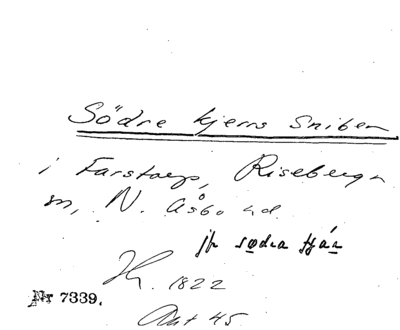 Södre kjerrs Sniben
i Farstorp, Riseberga
sn, N. Åsbo hd.
jfr södra kjär
1822
Nr 7339.
Akt 45